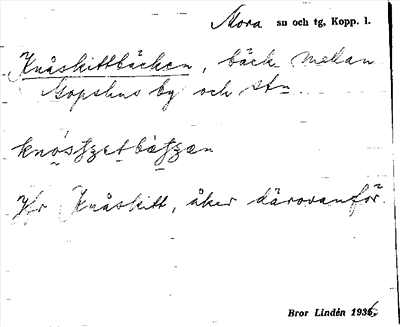 Mora sn och tg, Kopp. l.
Knåskittbäcken, bäck mellan
Gopshus by och stn.
Jfr Knåskitt, åker därovanför.
Bror Lindén 1936.